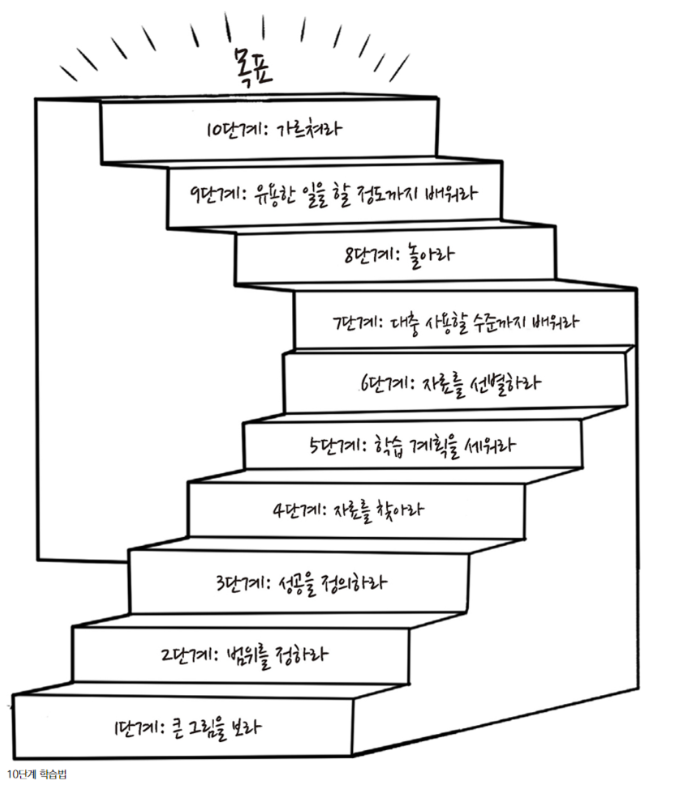 목표
10단계: 가르쳐라
9단계: 유용한 일을 할 정도까지 배워라
8단계: 놀아라
7단계: 대충 사용할 수준까지 배워라
6단계: 자료를 선별하라
5단계: 학습 계획을 세워라
4단계: 자료를 찾아라
3단계: 성공을 정의하라
2단계: 범위를 정하라
1단계: 큰 그림을 보라
10단계 학습법